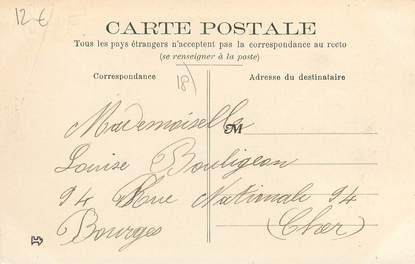 12 €
CARTE POSTALE
Tous les pays étrangers n'acceptent pas la correspondance au recto
(se renseigner à la poste)
Correspondance
18
Adresse du destinataire
Mademoiselle
M
Louise Bouligeon
94 Rue Nationale 94
Bourges (Cher)